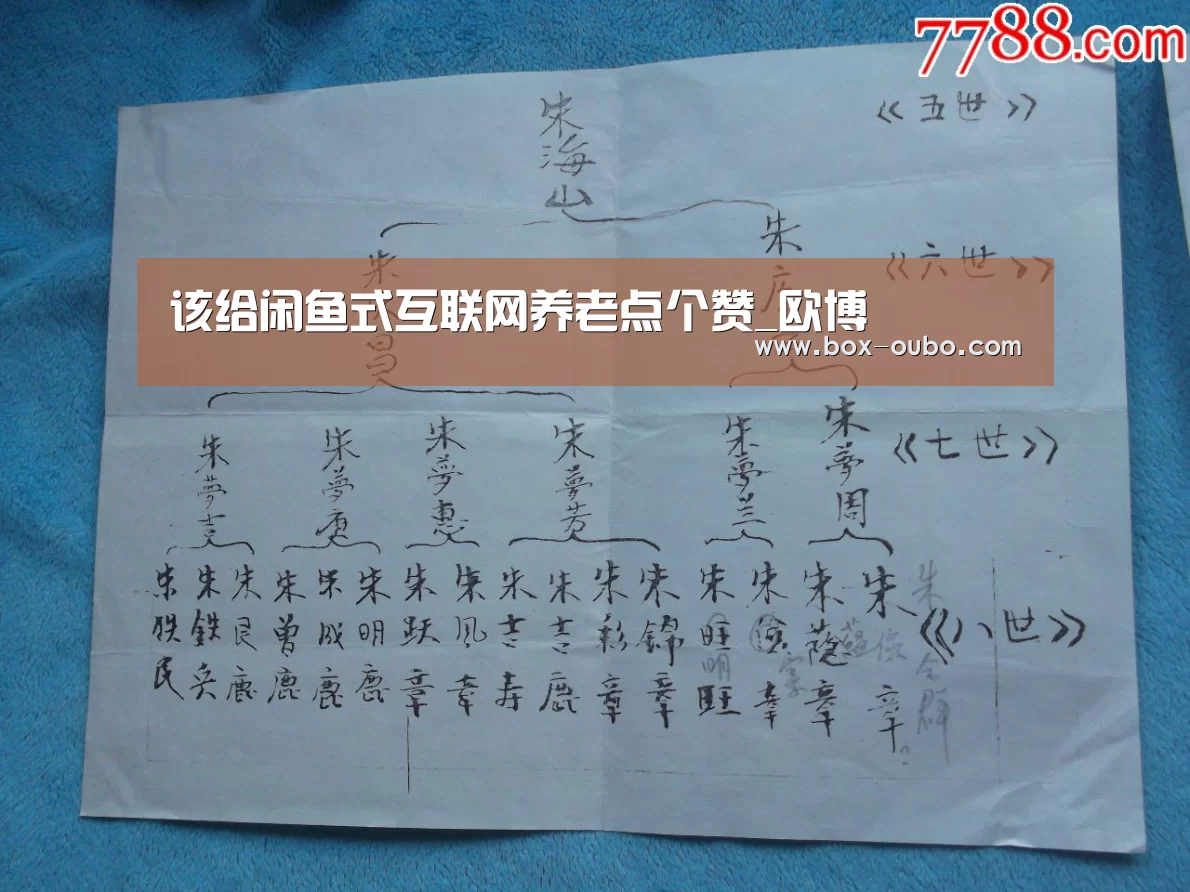 7788.com
朱海山
《五世》
朱
昌
朱庆
《六世》
该给闲鱼式互联网养老点个赞_欧博
www.box-oubo.com
朱夢吉
朱夢庚
朱夢惠
朱夢芳
朱夢兰
朱夢周
《七世》
朱铁民
朱鉄兵
朱艮鹿
朱曾鹿
朱成鹿
朱明鹿
朱跃章
朱风章
朱吉寿
朱吉鹿
朱彩章
朱錦章
朱旺旺
明
朱章
朱蔭章
朱章
朱全群
《八世》